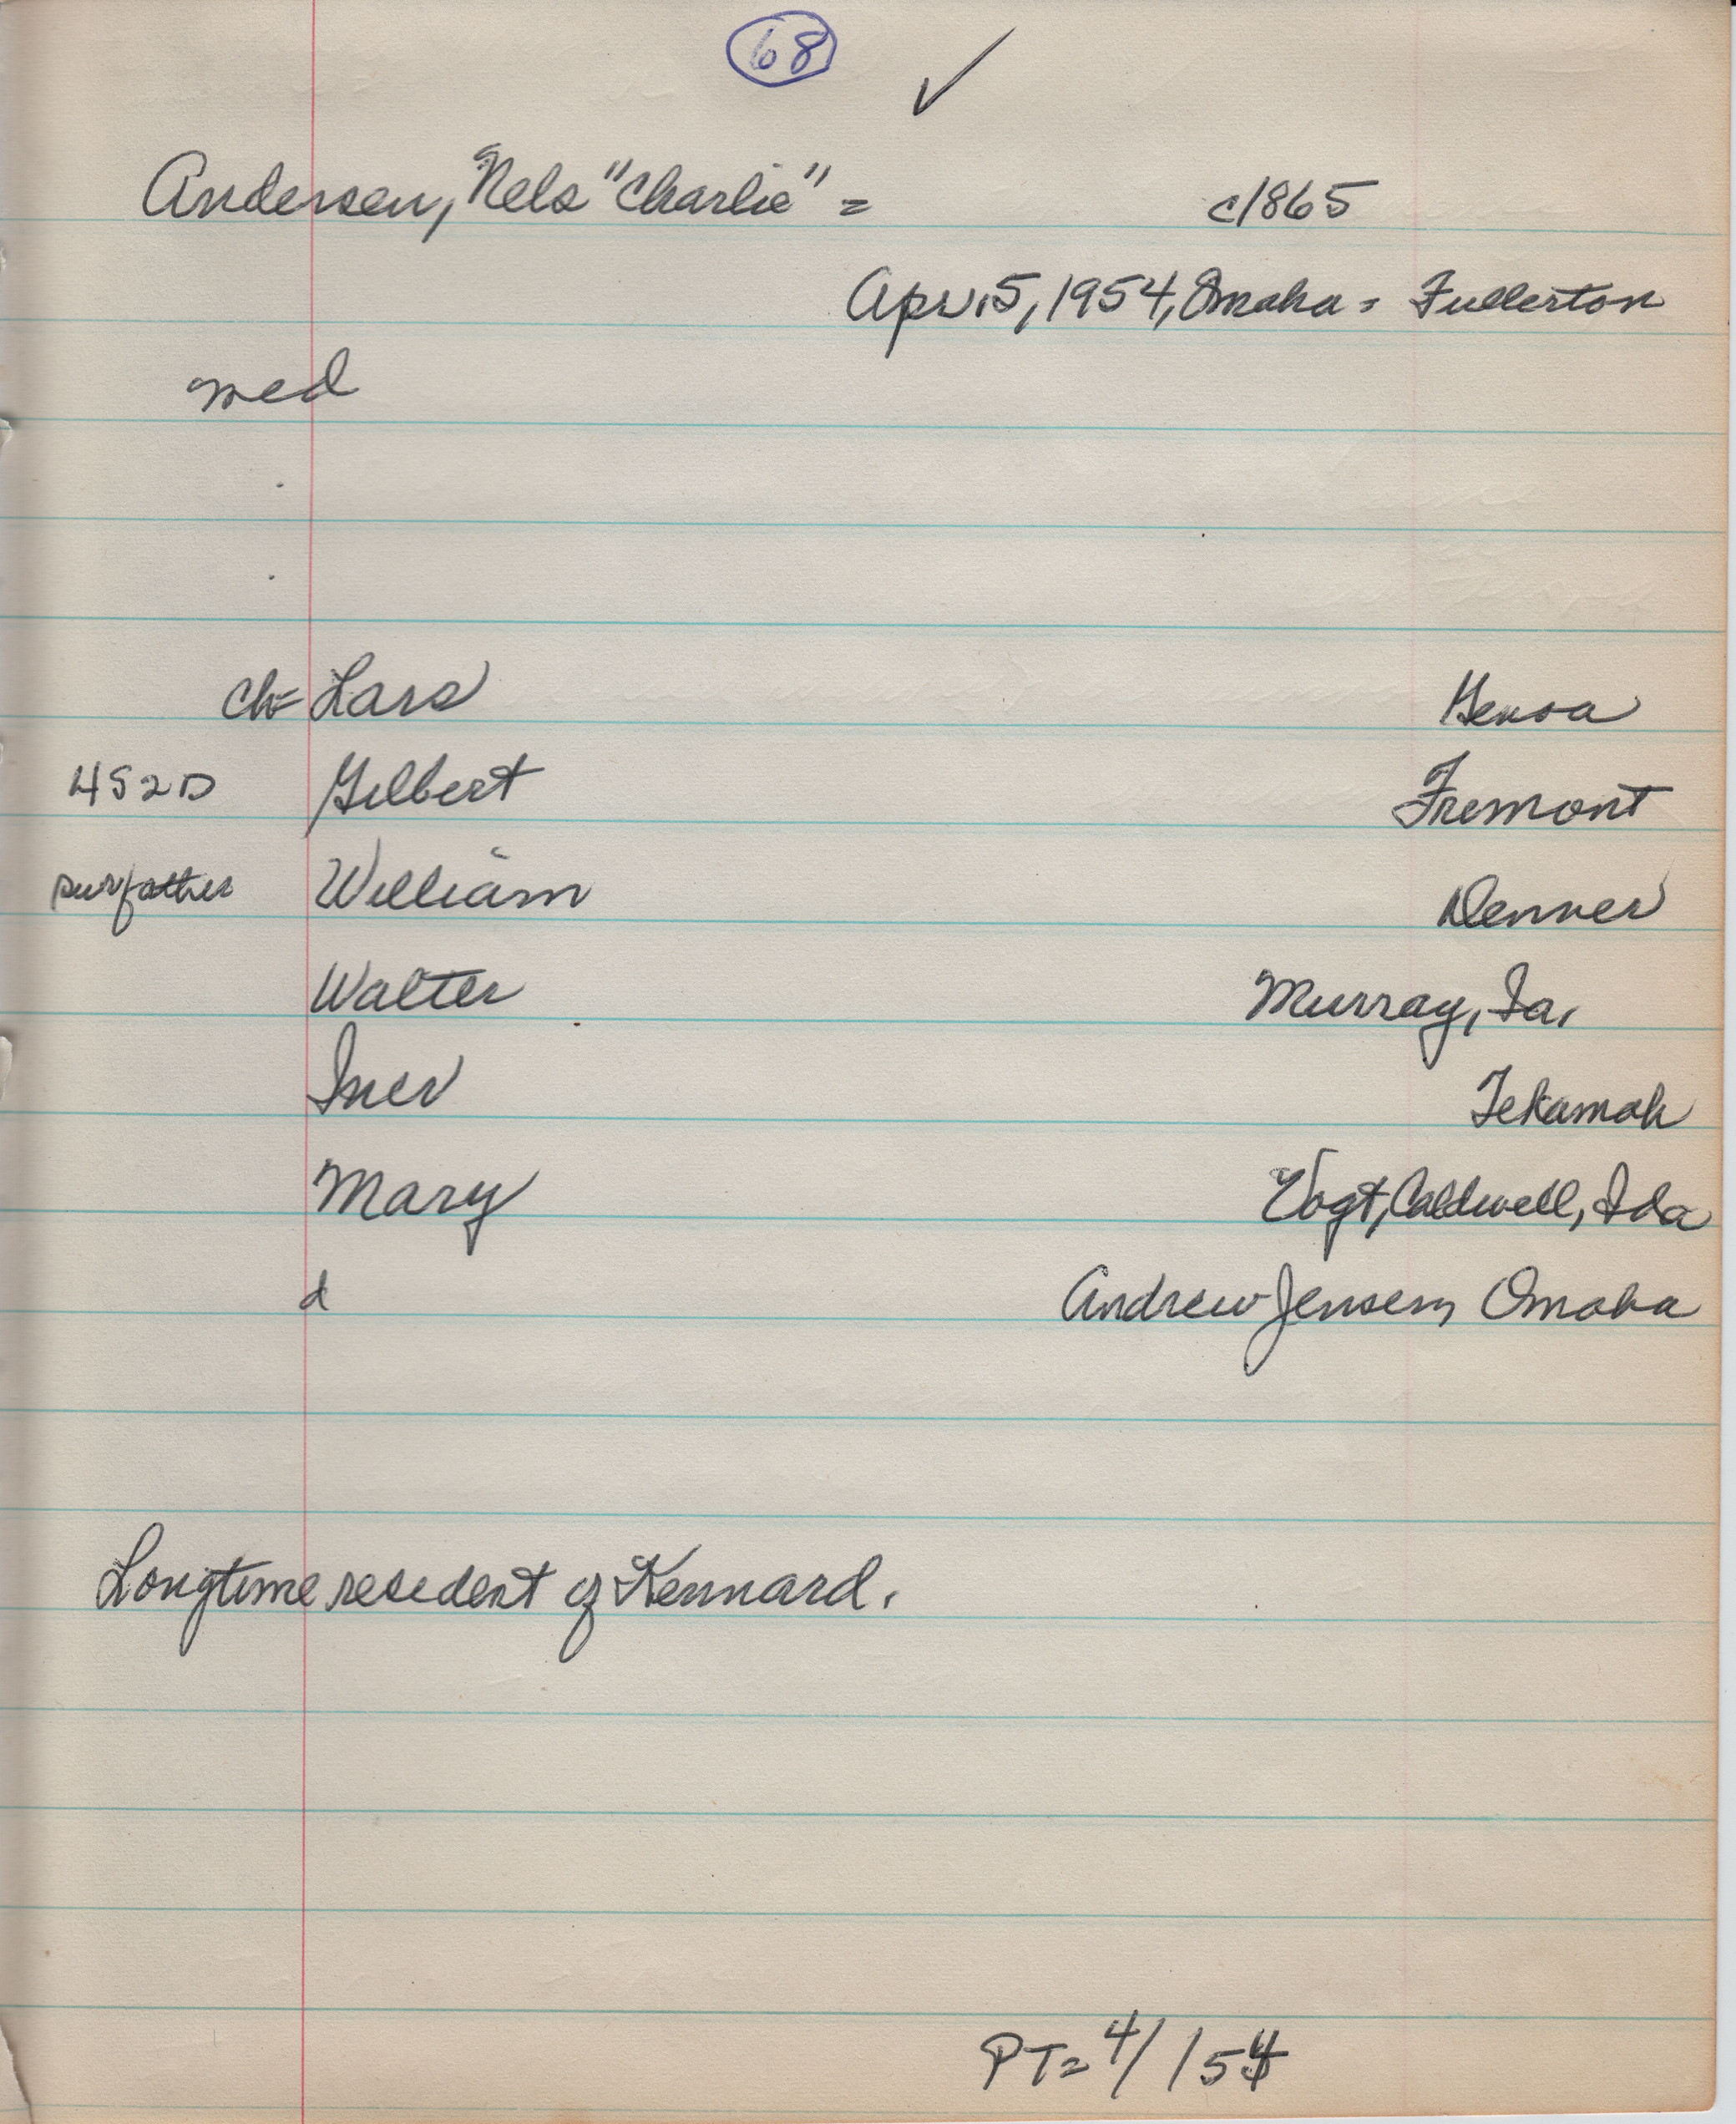 68 ✓
Andersen, Nels "Charlie" = c1865
Apr. 5, 1954, Omaha = Fullerton
med
ch= Lars Genoa
4S 2D Gilbert Fremont
surfather William Denver
Walter Murray, Ia.
Iner Tekamah
Mary Vogt, Caldwell, Ida
d Andrew Jensen, Omaha
Longtime resident of Kennard.
PT= 4/ /54